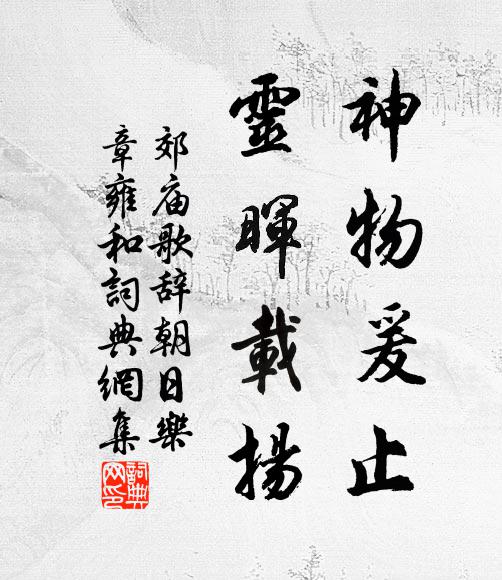 神物爰止
靈暉載揚
郊庙歌辞朝日樂
章雍和詞典網集
詞典
网印